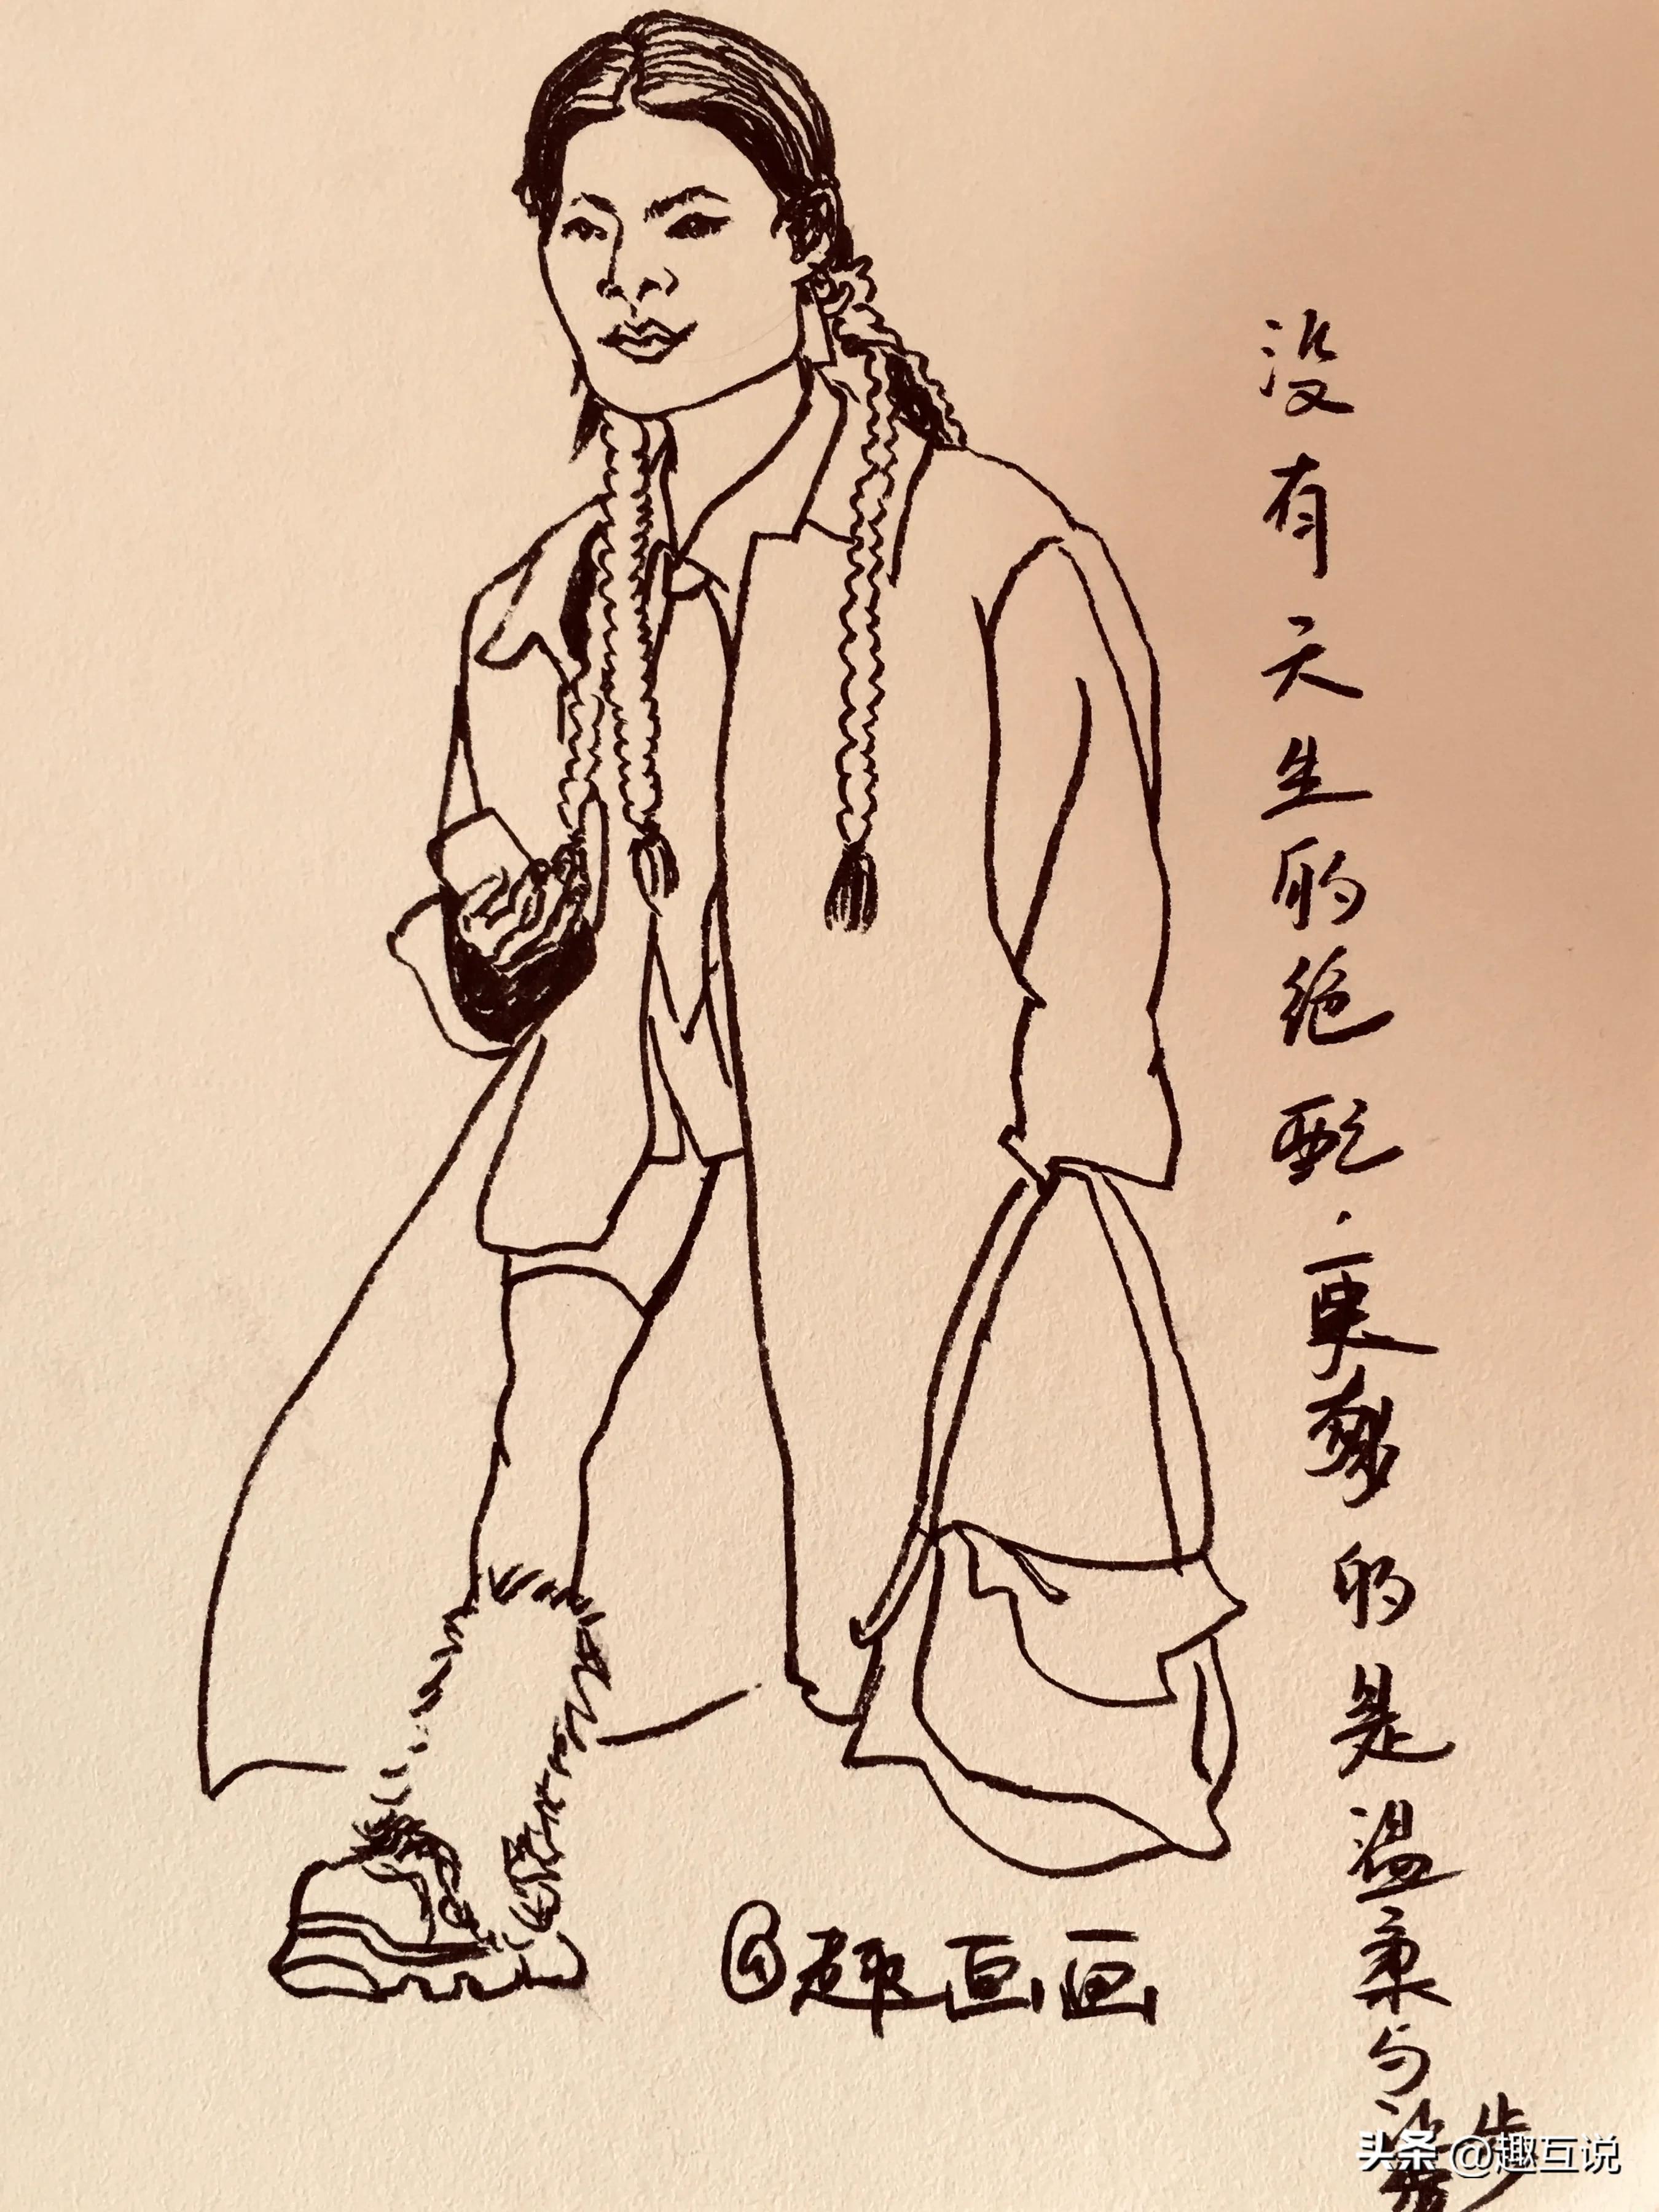 没有天生的绝配.更的是温柔与步
@趣画画
头条 @趣互说